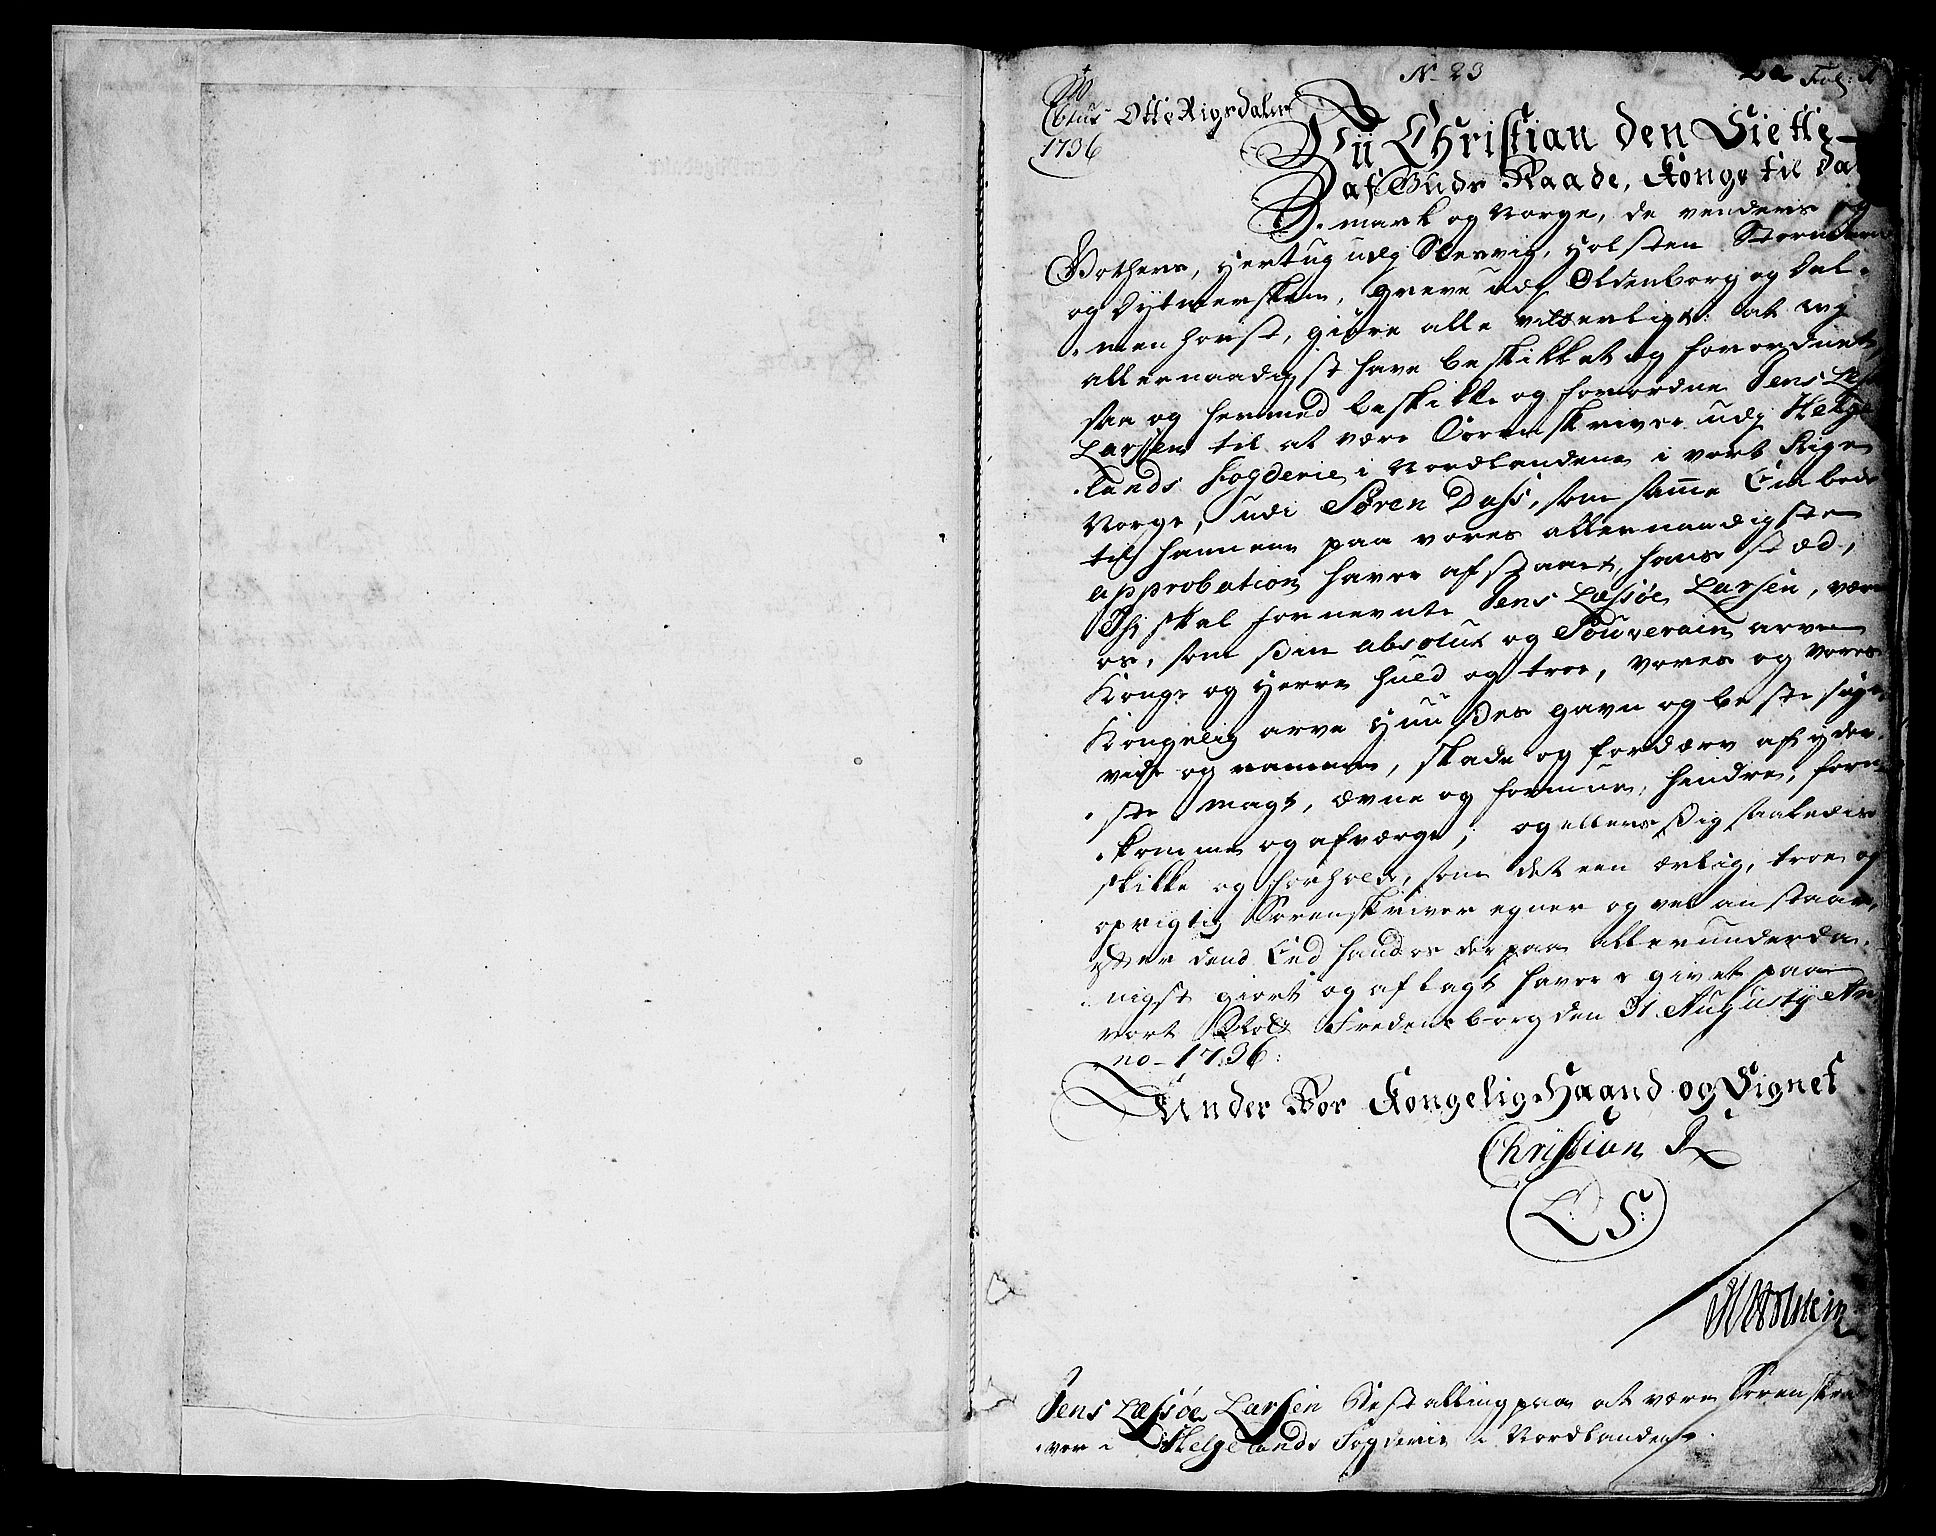 N. 23
Fol: 1
Otte Rigsdaler
1736
Wii Christian den Siette
af Guds Naade, Konge til Dan
mark og Norge, de venders og
Gothers, Hertug udj Slesvig, Holsten Stormarn
og Dytmersken, Greve udj Oldenborg og Del-
menhorst, giøre alle vitterligt: at wj
allernaadigst have beskikket og forordnet,
saa og hermed beskikke og forordne Jens Læssøe
Larssen til at være Sorenskriver udj Helge-
lands Fogderie i Nordlandene i vort Rige
Norge, udi Søren Dass, som samme Embede
til hannem paa vores allernaadigste
approbation haver afstaaet, hans stæd;
Thj skal fornevnte Jens Læssøe Larsen, være
os, som sin absolut og Souverain arve
Konge og Herre huld og troe, vores og vores
Kongelig arve Huusses gavn og beste søge
vide og ramme, skade og fordærv af yder-
ste magt, ævne og formue, hindre, fore-
komme og afværge; og ellers sig saaledis
skikke og forholde, som det een ærlig, troe og
oprigtig Sorenskriver egner og vel anstaar,
efter dend Eed hand os derpaa allerunderda-
nigst giort og aflagt haver givet paa
vort Slot Fredensborg den 31 Augustij An
no 1736:
Under Vor Kongelig Haand og Signet
Christian R
L: S:
Jens Læssøe Larsen Bestalling paa at være Sorenskri
ver i Helgelands Fogderie i Nordlandene.